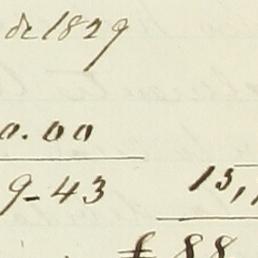 de 1829
0.00
9-43 15,
£ 88